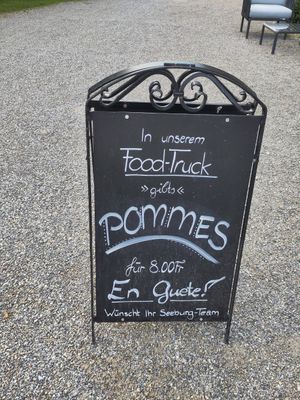 In unserem
Food-Truck
»gibts«
POMMES
für 8.00 Fr
En Guete!
Wünscht Ihr Seeburg-Team